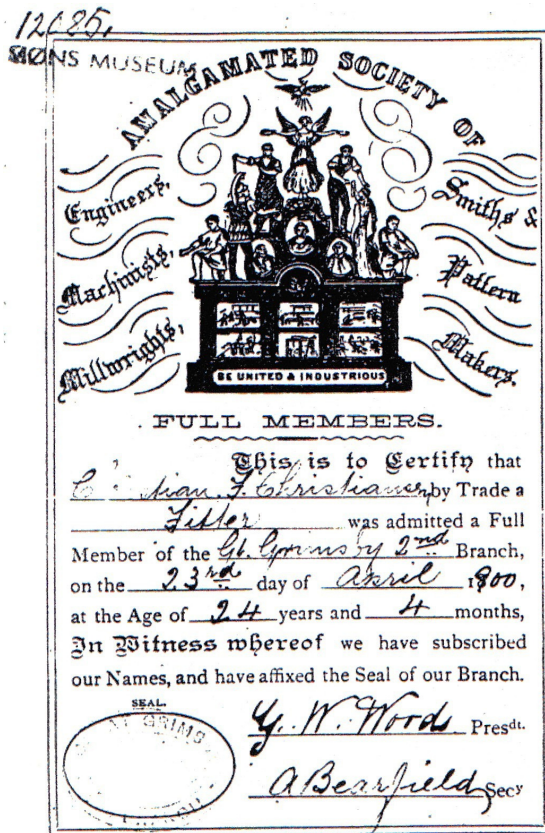 12085.
SIØNS MUSEUM
AMALGAMATED SOCIETY OF
Engineers,
Machinists,
Millwrights,
Smiths &
Pattern
Makers.
BE UNITED & INDUSTRIOUS
FULL MEMBERS.
This is to Certify that
F. Christiansen, by Trade a
Fitter was admitted a Full
Member of the Gt. Grimsby 2nd Branch,
on the 23rd day of April 1900,
at the Age of 24 years and 4 months,
In Witness whereof we have subscribed
our Names, and have affixed the Seal of our Branch.
SEAL.
GRIMS
G. W. Woods Presdt.
A Bearfield Secy